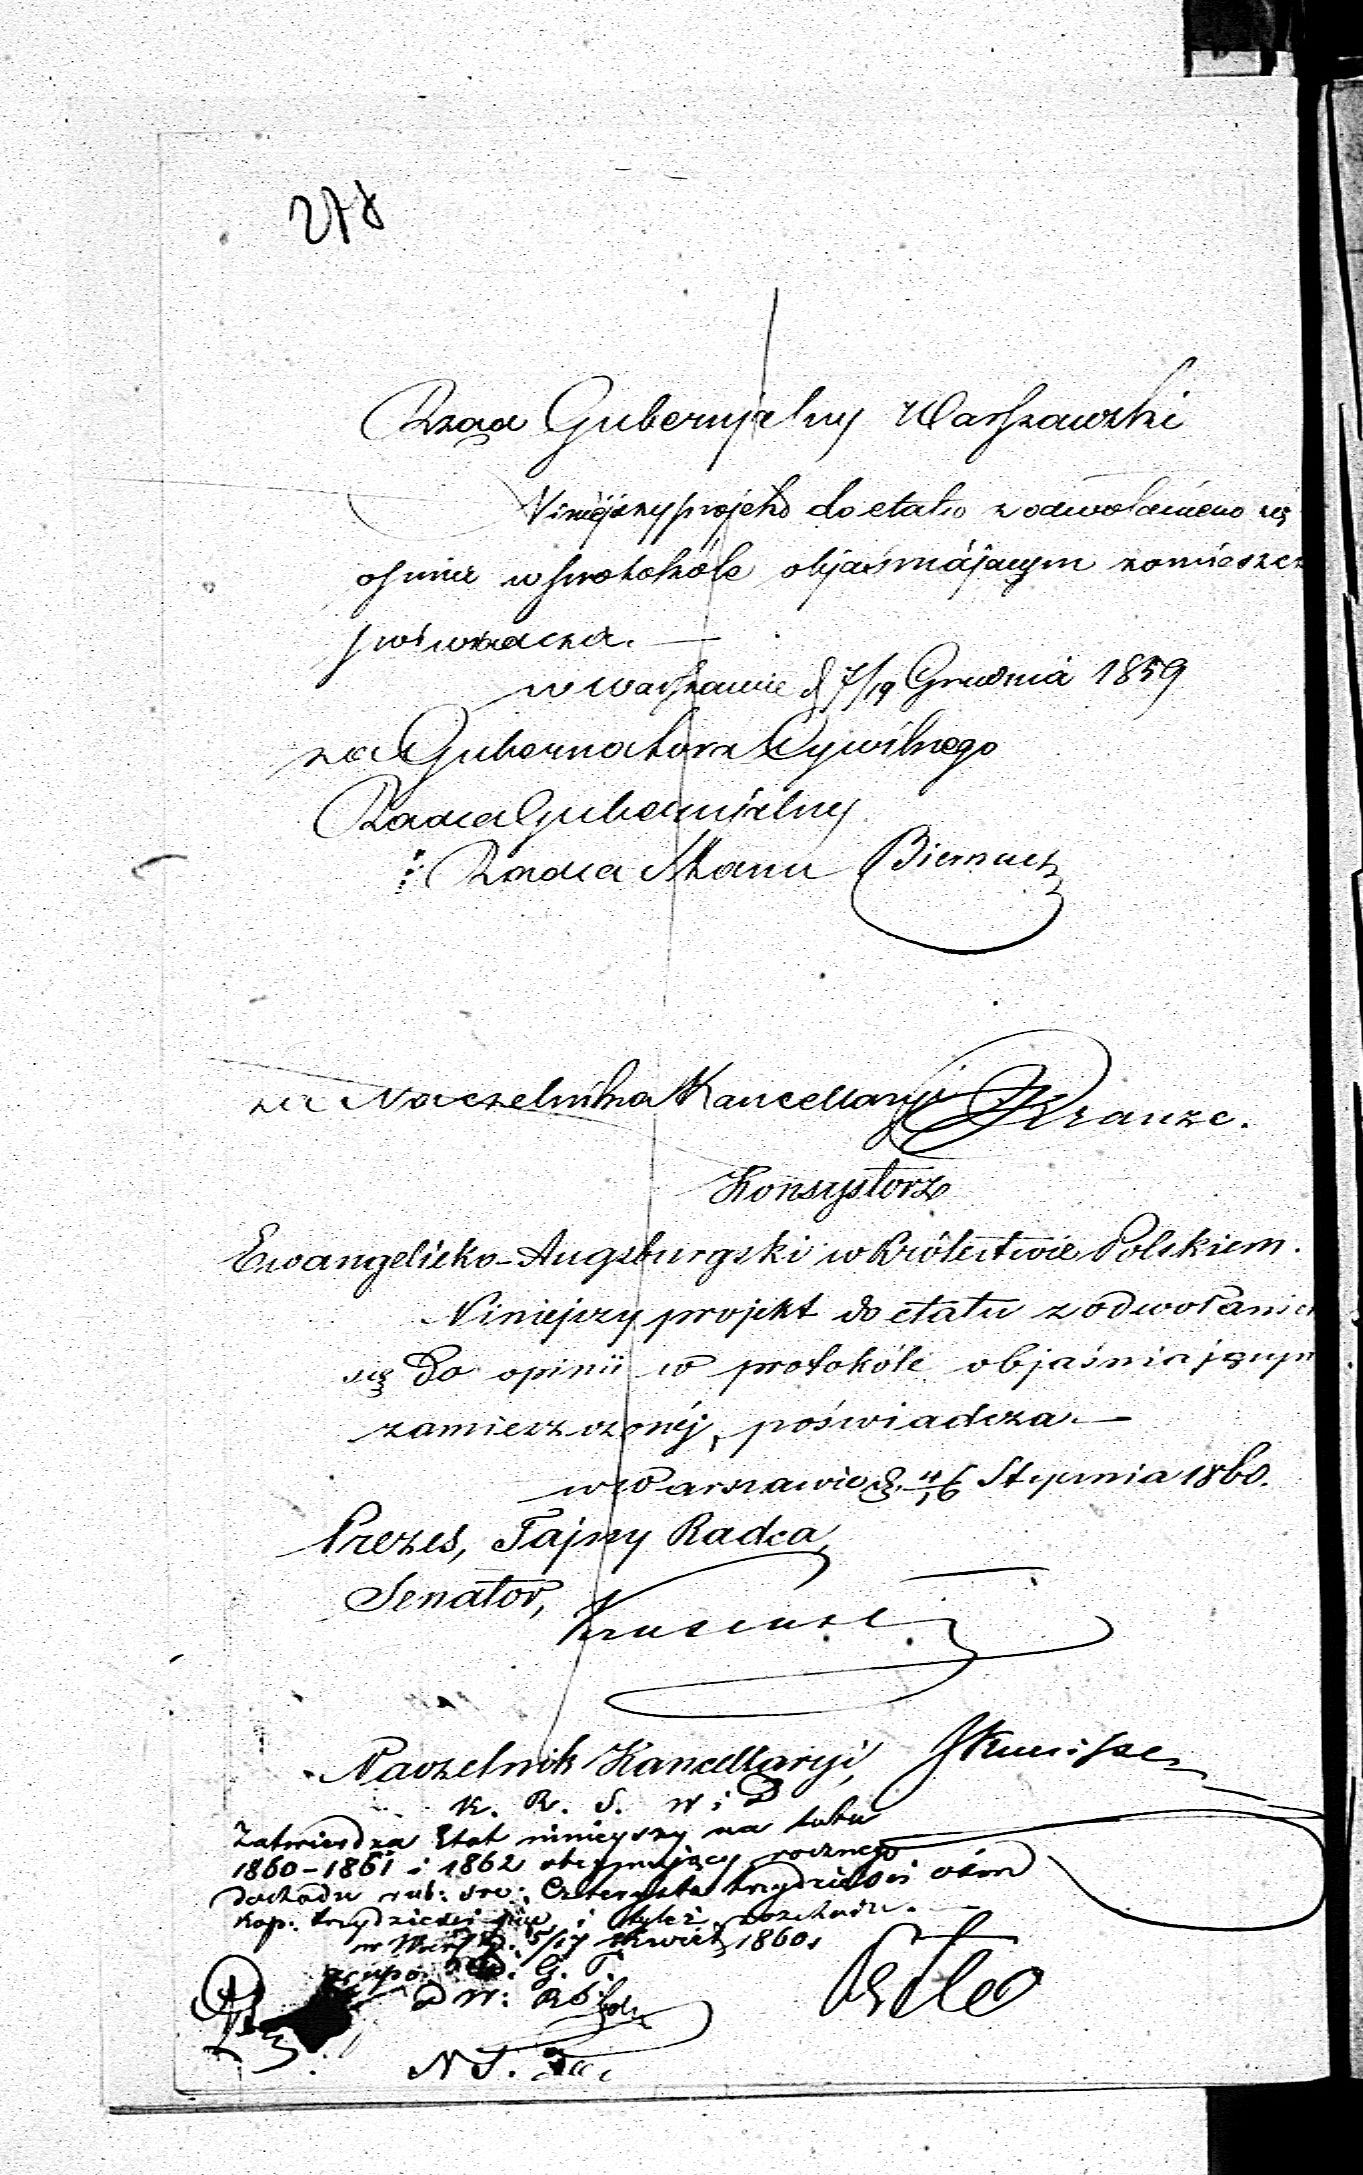 278
Rząd Gubernialny Warszawski
Niniejszy projekt do etatu z odwołaniem się
opinii w protokóle objaśniającym zamieszcz
poświadcza. —
w Warszawie d 7/19 Grudnia 1859
za Gubernatora Cywilnego
Radca Gubernialny
Radca Stanu Biernack
za Naczelnika Kancellaryi Kranze.
Konsystorz
Ewangelicko-Augsburgski w Królestwie Polskiem.
Niniejszy projekt do etatu z odwołanie
się Do opinii w protokóle objaśniającym
zamieszczonéj, poświadcza. —
w Warszawie d. 4/16 Stycznia 1860.
Prezes, Tajny Radca,
Senator,
Naczelnik Kancellaryi,
K. R. S. W i D
Zatwierdza Etat niniejszy na lata
1860-1861 i 1862 obejmujący rocznego
dochodu rub: sre: Czterysta trzydzieści ośm
kop: trzydzieści i tyleż rozchodu. —
w Warsz d. 5/17 Kwiet 1860.
G. D.
D W:
N S.